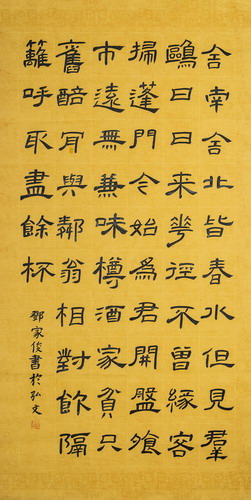 舍南舍北皆春水但見羣
鷗日日來華徑不曾緣客
掃蓬門今始爲君開盤飧
市遠無兼味樽酒家貧只
舊醅肯與鄰翁相對飲隔
籬呼取盡餘杯
鄧家俊書於弘文